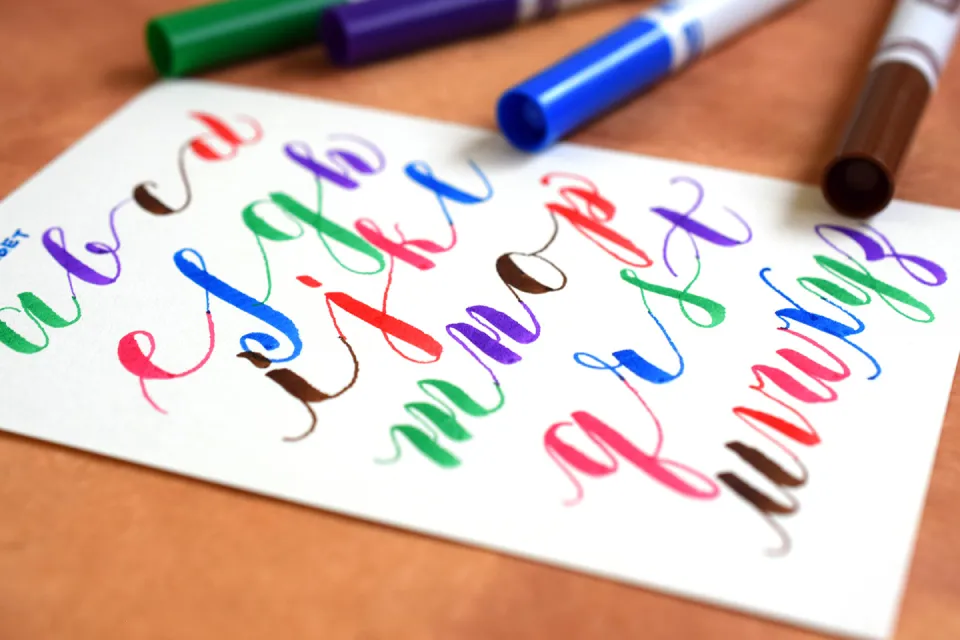 BET
abcd
efgh
ijkl
mnop
qrst
uvwxyz